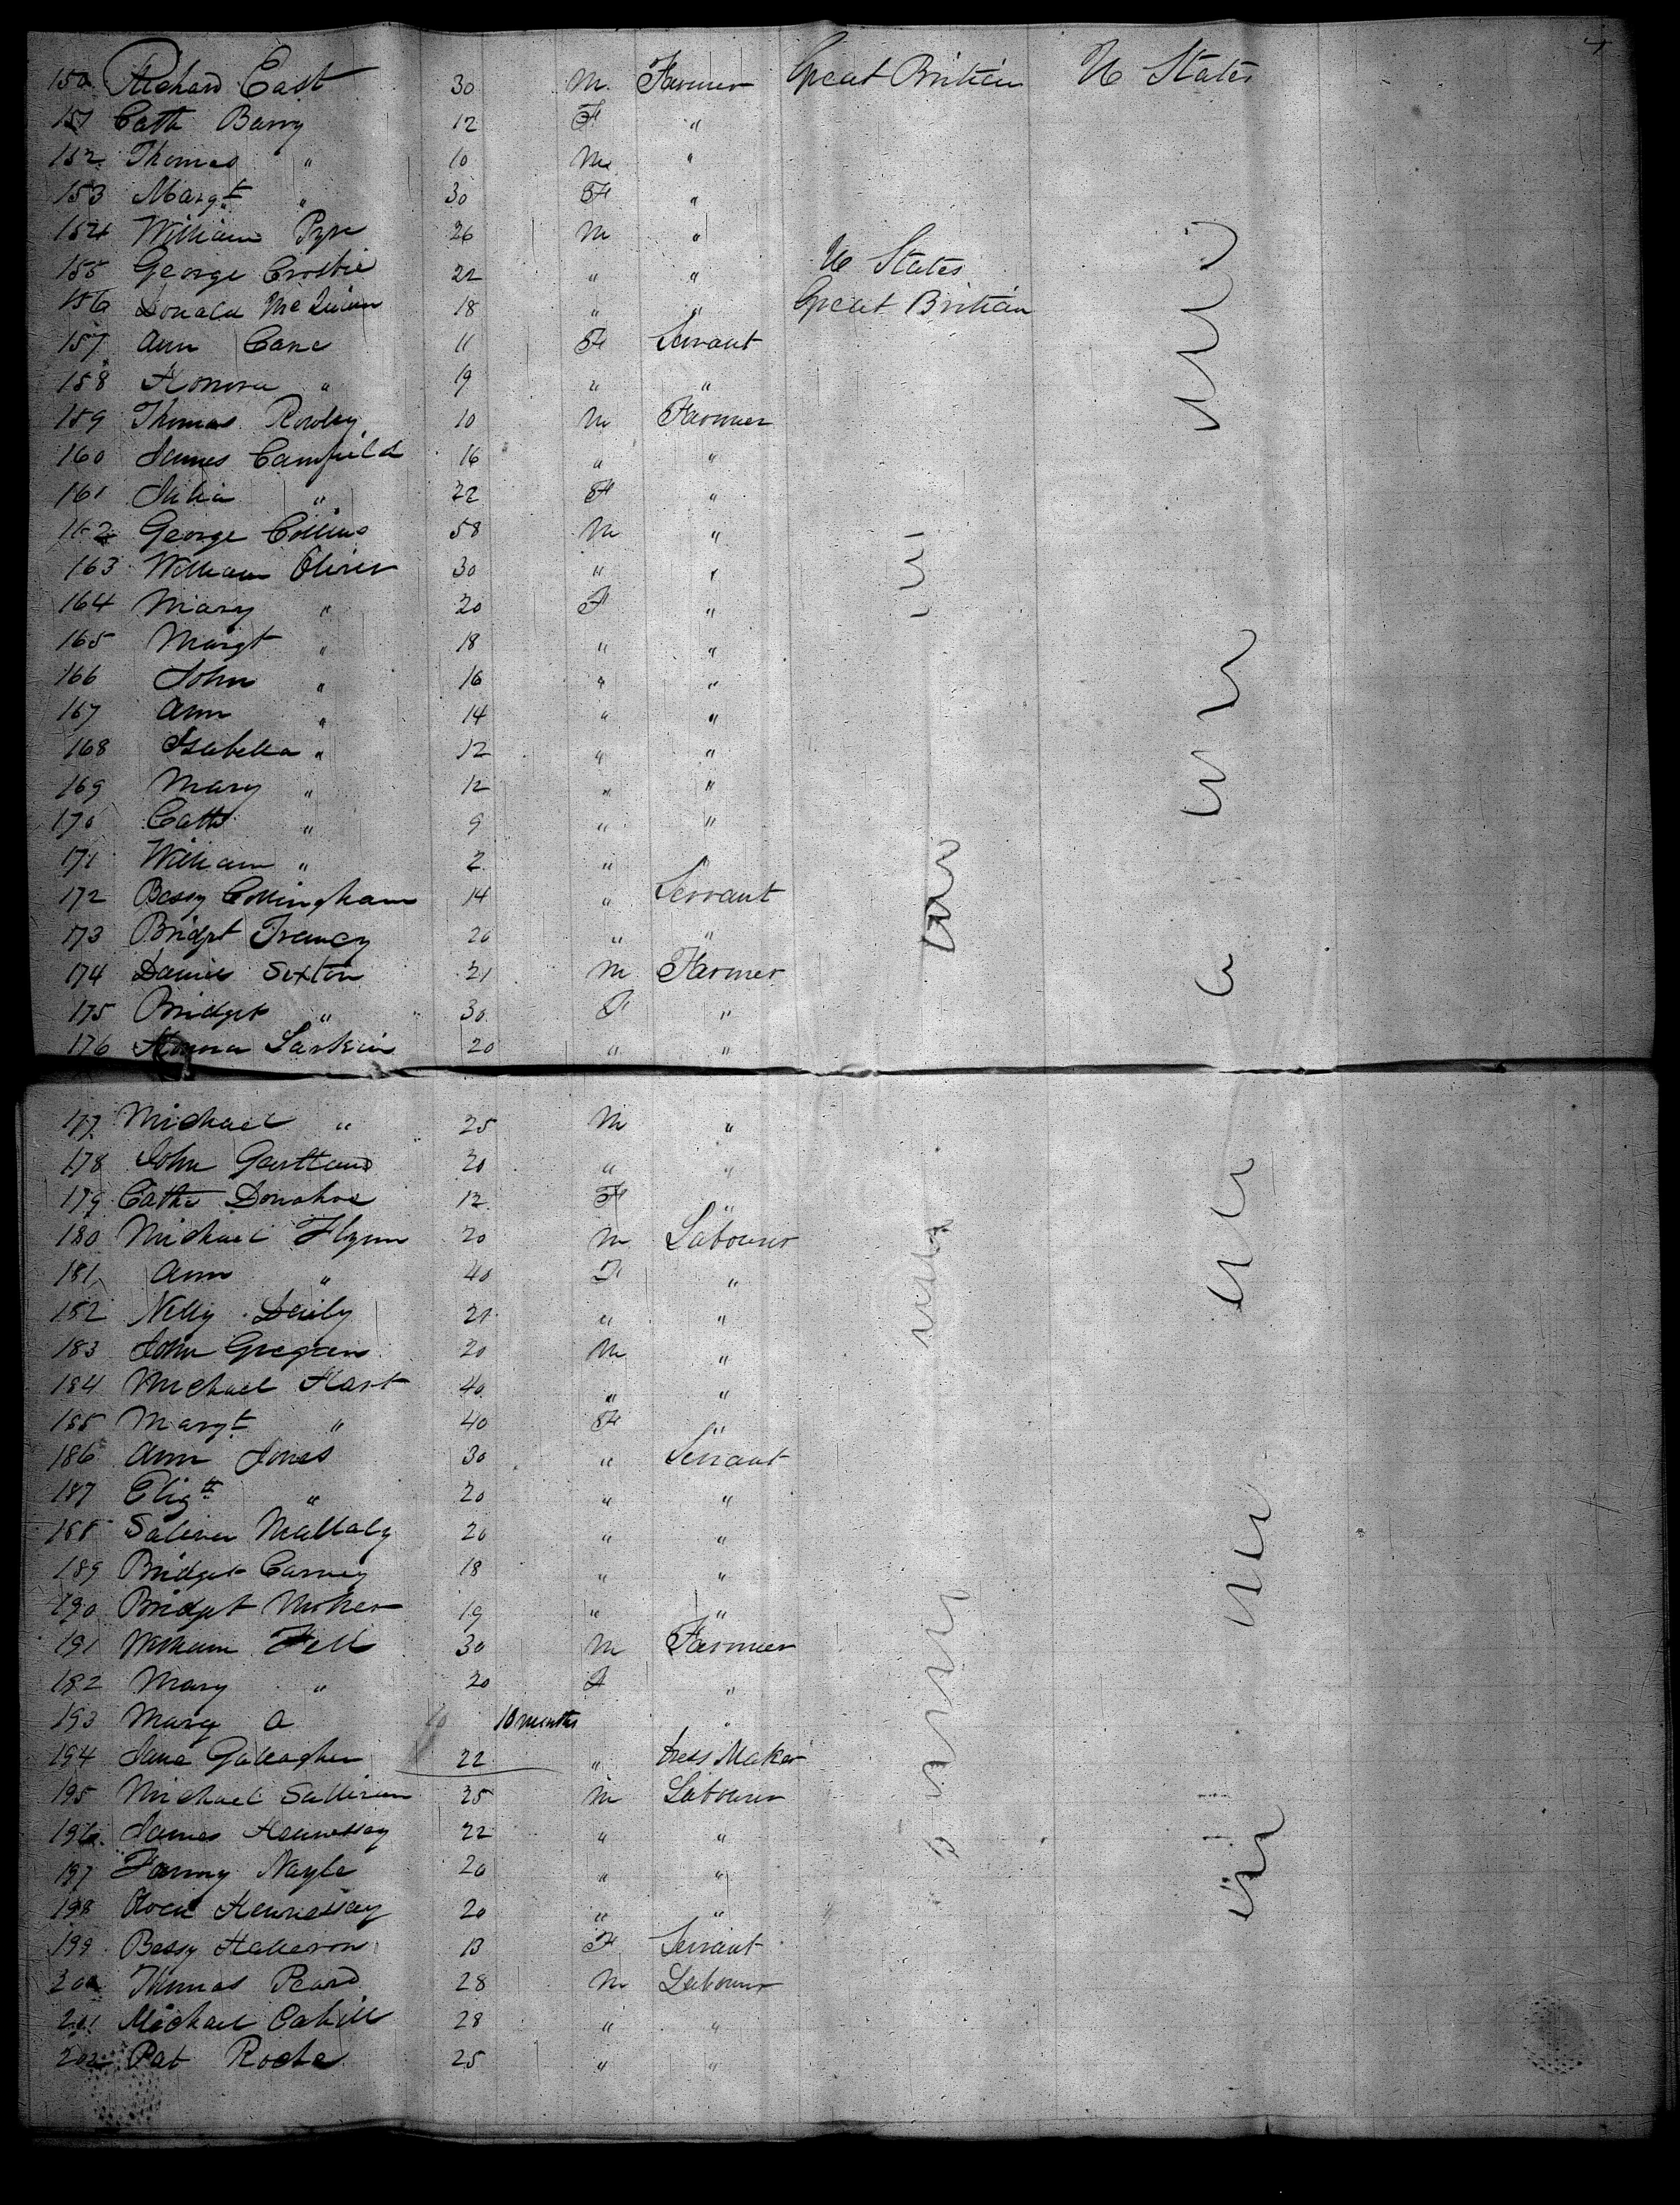 150 Richard East 30 M. Farmer Great Britian U States
151 Cath Barry 12 F "
152 Thomas " 10 M "
153 Margt " 30 F "
154 William Pyn 26 M "
155 George Crosbie 22 " " U States
156 Donald McQuinn 18 " " Great Britian
157 Ann Cane 11 F Servant
158 Honora " 19 " "
159 Thomas Rowley 10 M Farmer
160 James Camfield 16 " "
161 Julia " 22 F "
162 George Collins 58 M "
163 William Oliver 30 " "
164 Mary " 20 F "
165 Margt " 18 " "
166 John " 16 " "
167 Ann " 14 " "
168 Isabella " 12 " "
169 Mary " 12 " "
170 Cath " 9 " "
171 William " 2 " "
172 Bessy Collingham 14 " Servant
173 Bridgt 20 " "
174 Daniel Sexton 21 M Farmer
175 Bridget " 30 F "
176 Larkin 20 " "
177 Michael " 25 M "
178 John 20 " "
179 Cathe Donohoe 12 F "
180 Michael Flynn 20 M Labourer
181 Ann " 40 F "
182 Nelly Daily 21 " "
183 John Gregan 20 M "
184 Michael Hart 40 " "
185 Margt " 40 F "
186 Ann Jones 30 " Servant
187 Elizth " 20 " "
188 Mallaly 20 " "
189 Bridget Carney 18 " "
190 Bridget Moher 19 " "
191 William Fell 30 M Farmer
182 Mary " 20 F "
193 Mary A 10 months "
194 Jane Gallagher 22 " Dress Maker
195 Michael Sullivan 25 M Labourer
196 James Hennessay 22 " "
197 Fanny Nagle 20 " "
198 Hennessay 20 " "
199 Bessy Halleron 13 F Servant
200 Thomas Peard 28 M Labourer
201 Michael Cahill 28 " "
202 Pat Roche 25 " "